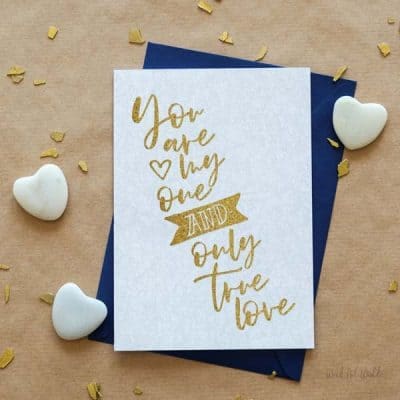 You
are
my
one
AND
only
true
love